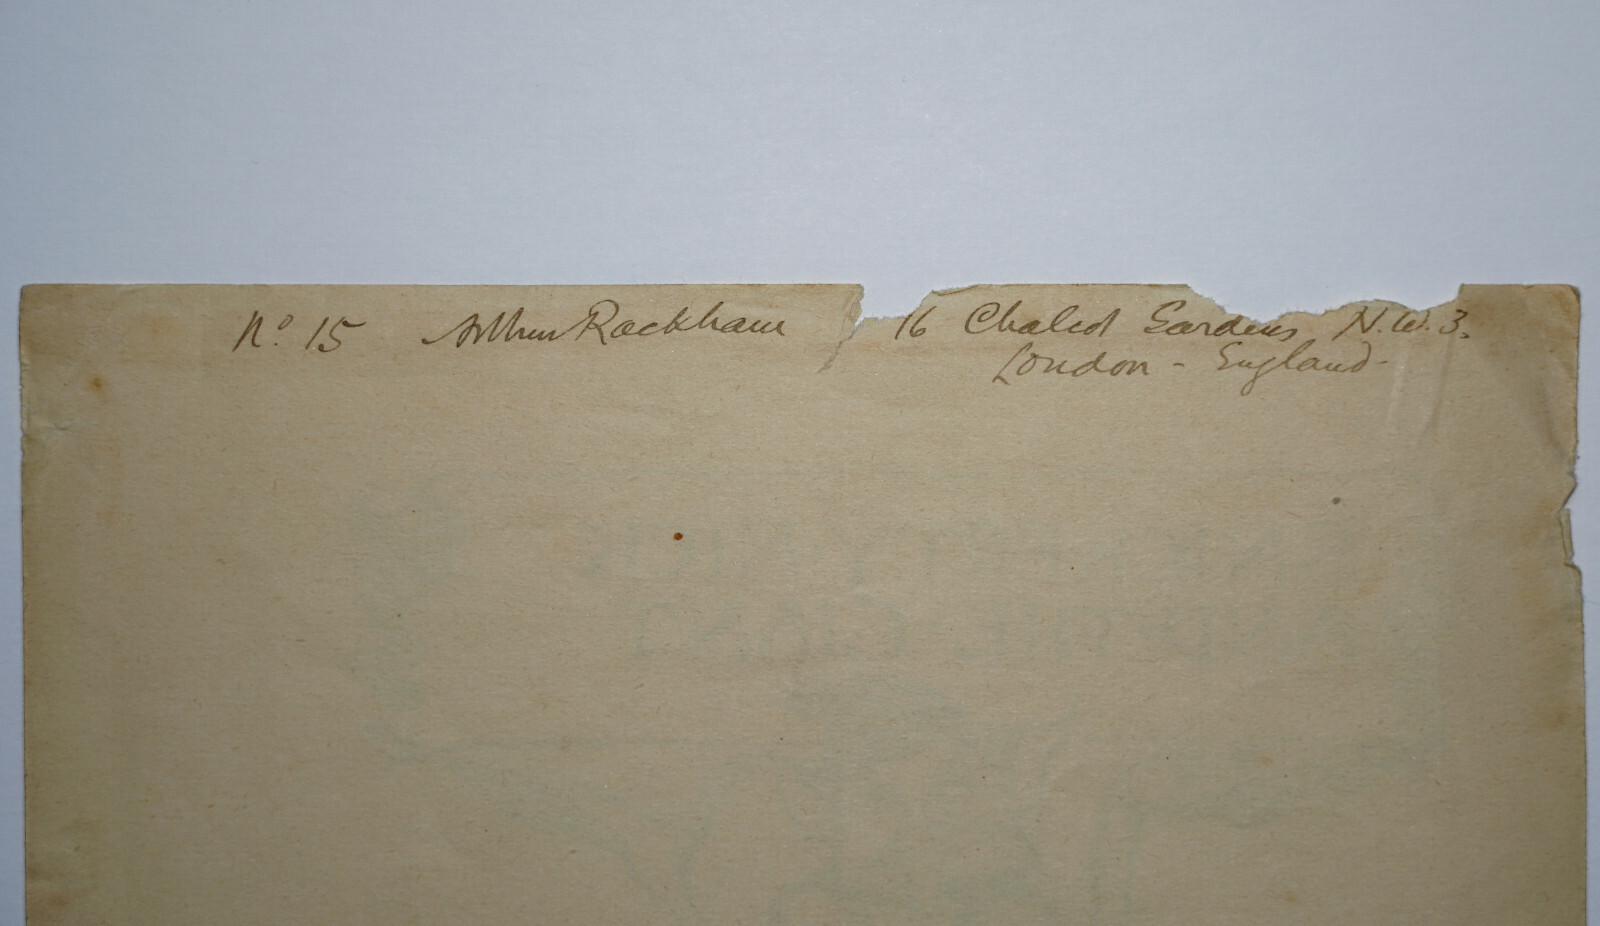 No. 15 Arthur Rackham 16 Chalcot Gardens N.W.3.
London - England -